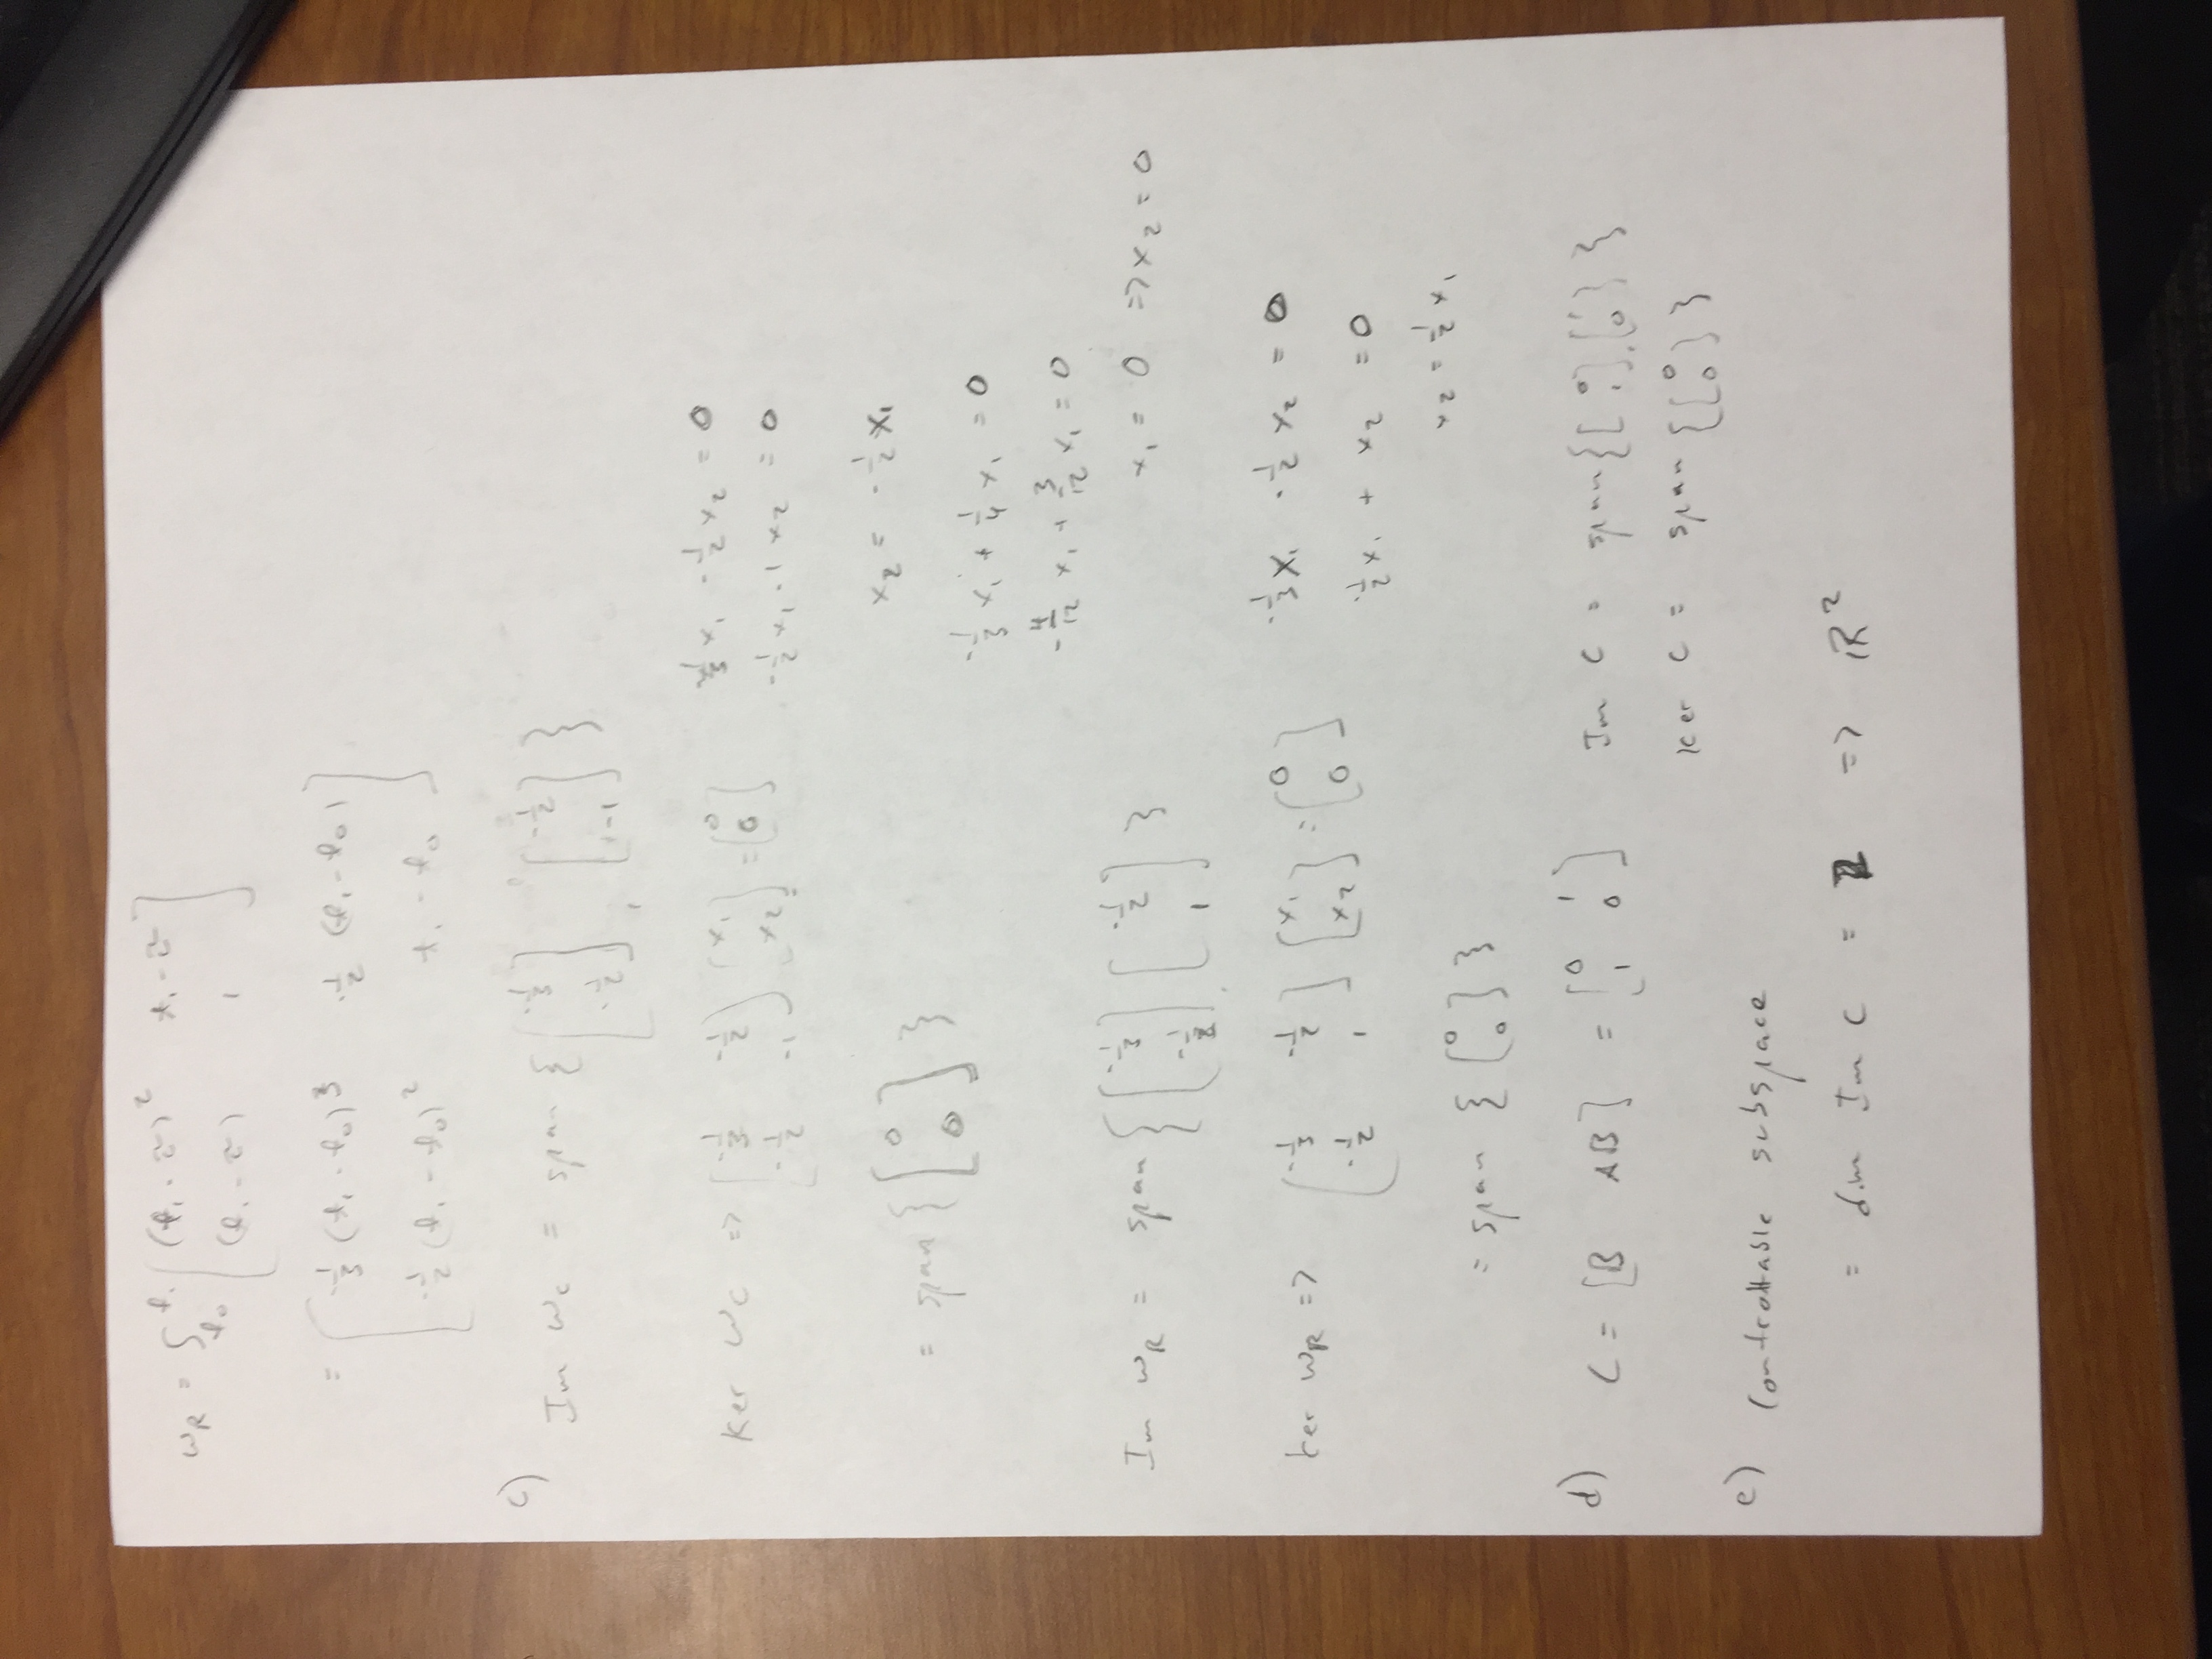 W_R = ∫_{t_0}^{t_1} [ (t_1 - τ)^2   t_1 - τ ; (t_1 - τ)   1 ]
= [ -1/3 (t_1 - t_0)^3   -1/2 (t_1 - t_0) ; -1/2 (t_1 - t_0)^2   t_1 - t_0 ]
c)
Im W_c = span { [ -1/3 ; -1/2 ], [ -1/2 ; -1 ] }
Ker W_c => [ -1/3   -1/2 ; -1/2   -1 ] [ x_1 ; x_2 ] = [ 0 ; 0 ]
-1/3 x_1 - 1/2 x_2 = 0
-1/2 x_1 - 1 x_2 = 0
x_2 = -1/2 x_1
= span { [ 0 ; 0 ] }
-1/3 x_1 + 1/4 x_1 = 0
-4/12 x_1 + 3/12 x_1 = 0
x_1 = 0 => x_2 = 0
Im W_R = span { [ -1/3 ; -1/2 ], [ -1/2 ; 1 ] }
Ker W_R => [ -1/3   -1/2 ; -1/2   1 ] [ x_1 ; x_2 ] = [ 0 ; 0 ]
-1/3 x_1 - 1/2 x_2 = 0
-1/2 x_1 + x_2 = 0
x_2 = 1/2 x_1
= span { [ 0 ; 0 ] }
d) C = [ B   AB ] = [ 0   1 ; 1   0 ]
Im C = span { [ 0 ; 1 ], [ 1 ; 0 ] }
Ker C = span { [ 0 ; 0 ] }
e) Controllable subspace
= dim Im C = 2 => ℝ^2